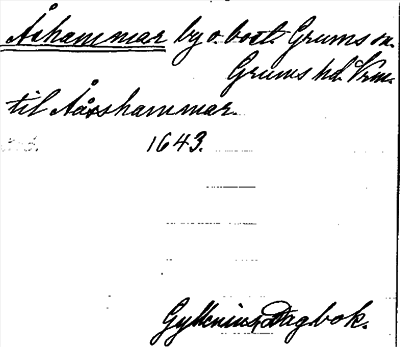 Åshammar by o. bost. Grums sn.
Grums hd. Vrm.
til Åårshammar.
1643.
Gyllenius Dagbok.